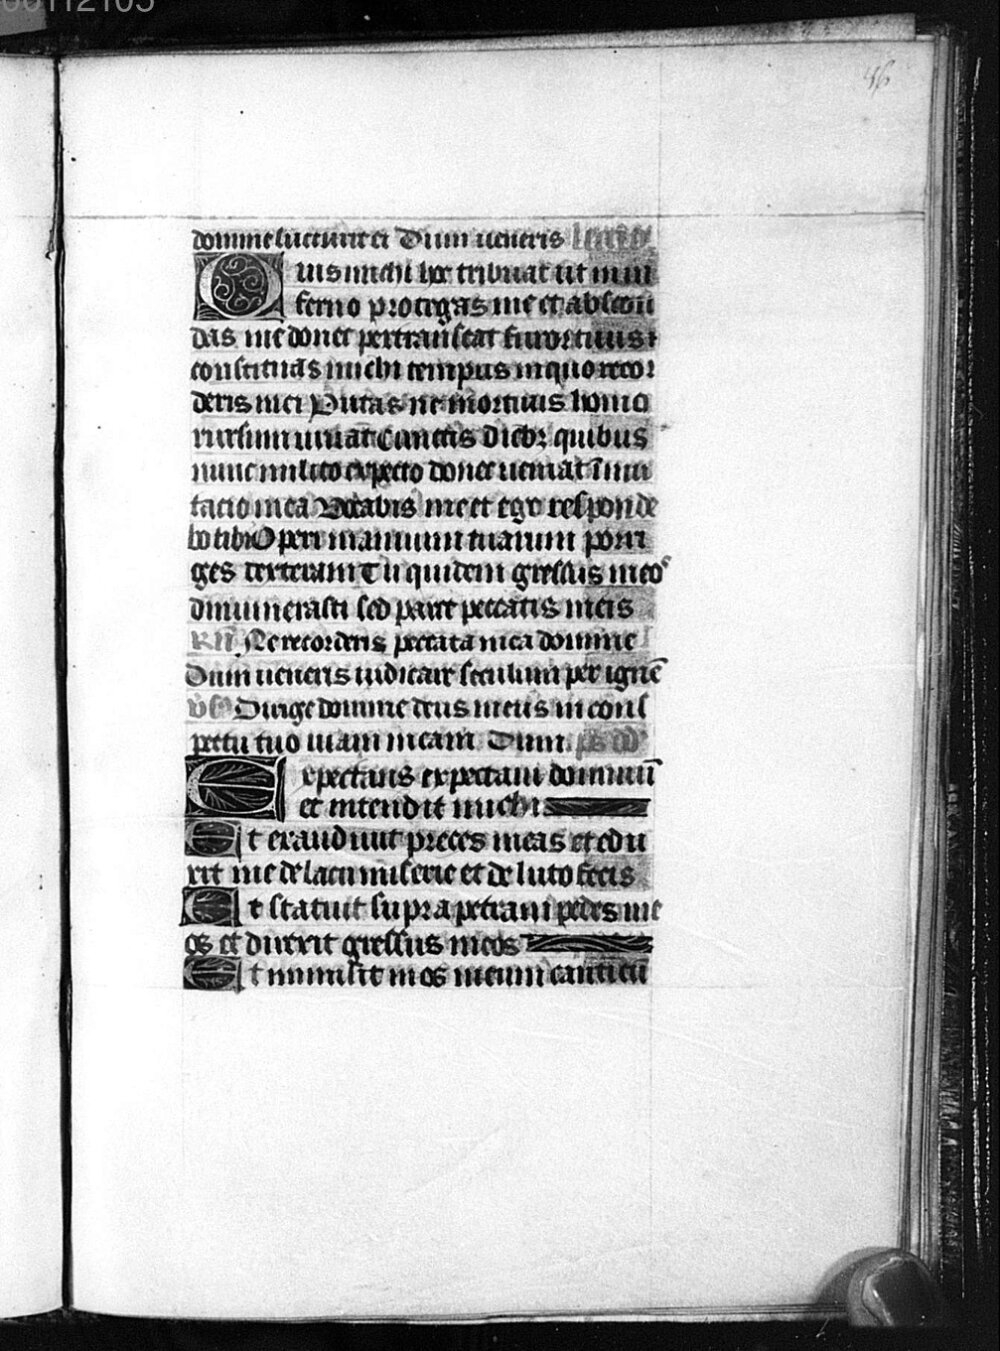 00112105
86
domine succurre ei Dum ueneris lectio
Quis michi hoc tribuat ut in in
ferno protegas me et abscon
das me donec pertranseat furor tuus ⁊
constituas michi tempus in quo recor
deris mei Putas ne mortuus homo
rursum uiuat Cunctis diebꝫ quibus
nunc milito expecto donec ueniat īmu
tacio mea Vocabis me et ego responde
bo tibi Operi manuum tuarum porri
ges dexteram Tu quidem gressus meos
dinumerasti sed parce peccatis meis
Ne recorderis peccata mea domine
Dum ueneris iudicare seculum per ignē
Dirige domine deus meus in cons
pectu tuo uiam meam Dum. ps dd
Expectans expectaui dominū
et intendit michi
Et exaudiuit preces meas et edu
xit me de lacu miserie et de luto fecis
Et statuit supra petram pedes me
os et direxit gressus meos
Et inmisit in os meum canticū